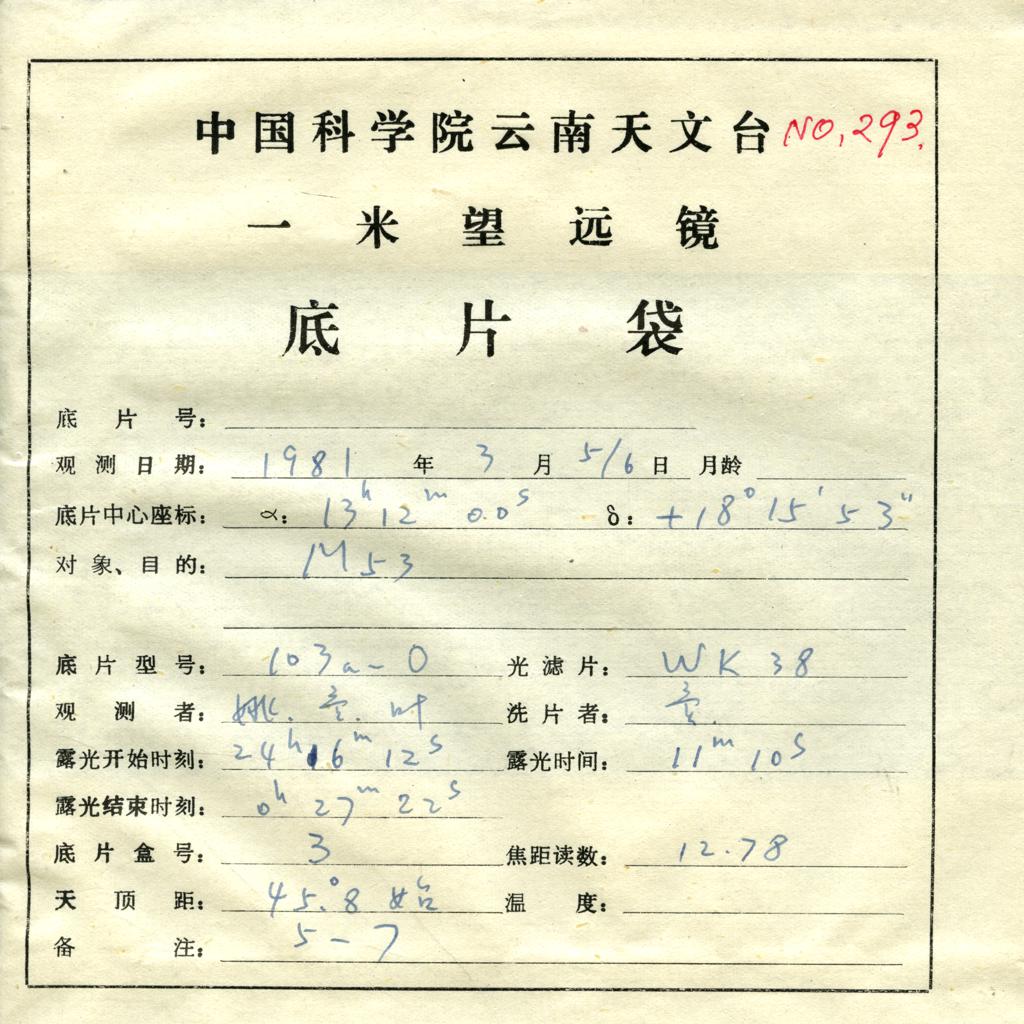 中国科学院云南天文台 NO.293.
一米望远镜
底片袋
底片号：
观测日期： 1981 年 3 月 5/6 日 月龄
底片中心座标： α： 13h 12m 0.0s δ： +18° 15′ 53″
对象、目的： M53
底片型号： 103a-O 光滤片： WK 38
观测者： 姚. 叶 洗片者：
露光开始时刻： 24h 16m 12s 露光时间： 11m 10s
露光结束时刻： 0h 27m 22s
底片盒号： 3 焦距读数： 12.78
天顶距： 45.°8 始 温度：
备注： 5-7